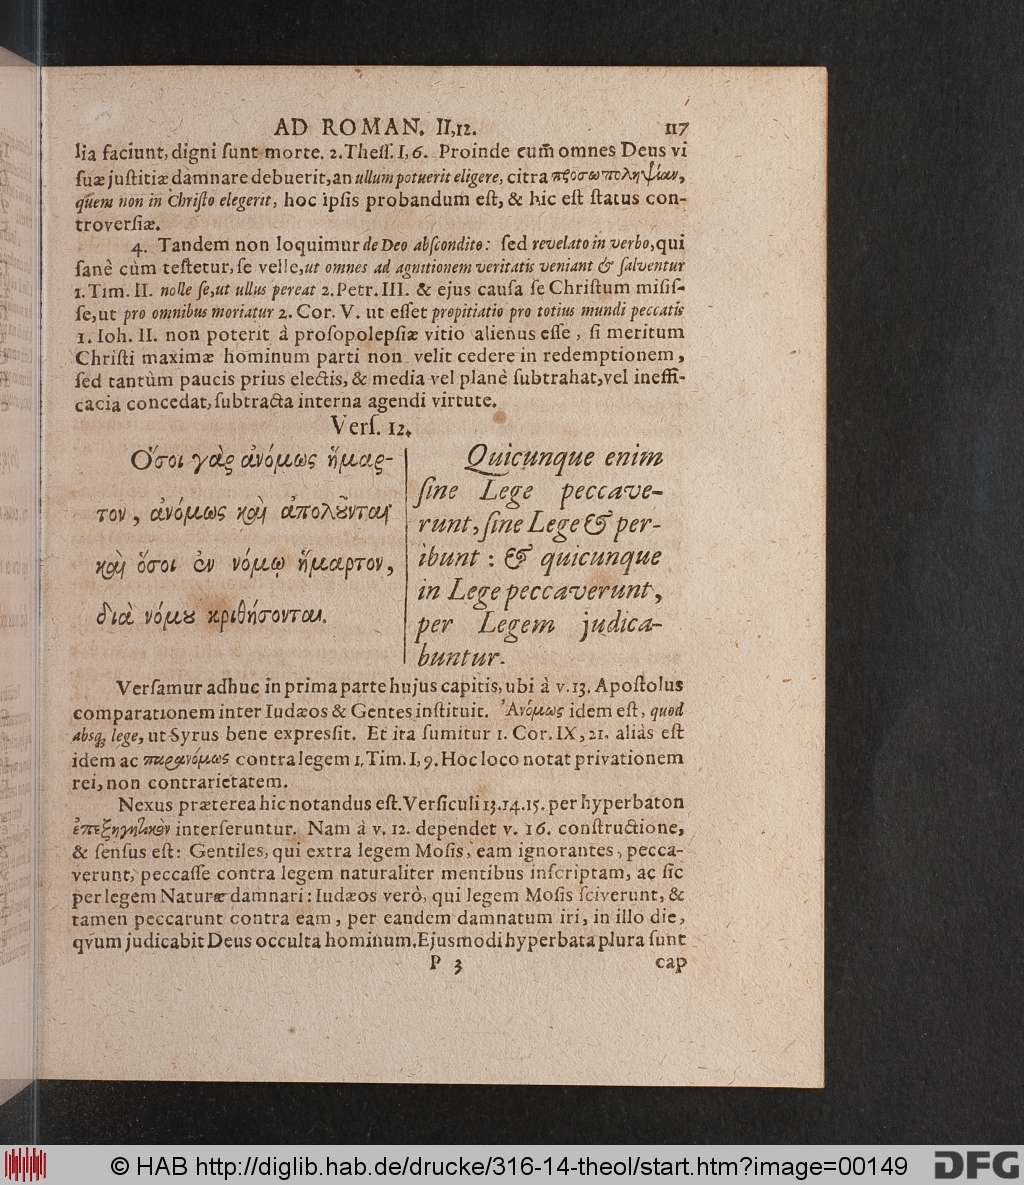 AD ROMAN. II,12. 117
lia faciunt, digni ſunt morte. 2. Theſſ. I, 6. Proinde cum̃ omnes Deus vi
ſuæ juſtitiæ damnare debuerit, an ullum potuerit eligere, citra προσωποληψίαν,
quem non in Chriſto elegerit, hoc ipſis probandum eſt, & hic eſt ſtatus con-
troverſiæ.
4. Tandem non loquimur de Deo abſcondito: ſed revelato in verbo, qui
ſanè cùm teſtetur, ſe velle, ut omnes ad agnitionem veritatis veniant & ſalventur
1. Tim. II. nolle ſe, ut ullus pereat 2. Petr. III. & ejus cauſa ſe Chriſtum miſiſ-
ſe, ut pro omnibus moriatur 2. Cor. V. ut eſſet propitiatio pro totius mundi peccatis
1. Ioh. II. non poterit à proſopolepſiæ vitio alienus eſſe, ſi meritum
Chriſti maximæ hominum parti non velit cedere in redemptionem,
ſed tantùm paucis prius electis, & media vel planè ſubtrahat, vel ineffi-
cacia concedat, ſubtracta interna agendi virtute.
Verſ. 12.
Ὅσοι γὰρ ἀνόμως ἥμαρ-
τον, ἀνόμως καὶ ἀπολοῦνται
καὶ ὅσοι ἐν νόμῳ ἥμαρτον,
διὰ νόμου κριθήσονται.
Quicunque enim
ſine Lege peccave-
runt, ſine Lege & per-
ibunt: & quicunque
in Lege peccaverunt,
per Legem judica-
buntur.
Verſamur adhuc in prima parte hujus capitis, ubi à v. 13. Apoſtolus
comparationem inter Iudæos & Gentes inſtituit. Ἀνόμως idem eſt, quod
absq; lege, ut Syrus bene expreſſit. Et ita ſumitur 1. Cor. IX, 21. aliàs eſt
idem ac παρανόμως contra legem 1. Tim. I, 9. Hoc loco notat privationem
rei, non contrarietatem.
Nexus præterea hic notandus eſt. Verſiculi 13. 14. 15. per hyperbaton
ἐπεξηγητικὸν interſeruntur. Nam à v. 12. dependet v. 16. conſtructione,
& ſenſus eſt: Gentiles, qui extra legem Moſis, eam ignorantes, pecca-
verunt, peccaſſe contra legem naturaliter mentibus inſcriptam, ac ſic
per legem Naturæ damnari: Iudæos verò, qui legem Moſis ſciverunt, &
tamen peccarunt contra eam, per eandem damnatum iri, in illo die,
qvum judicabit Deus occulta hominum. Ejusmodi hyperbata plura ſunt
P 3 cap
© HAB http://diglib.hab.de/drucke/316-14-theol/start.htm?image=00149 DFG